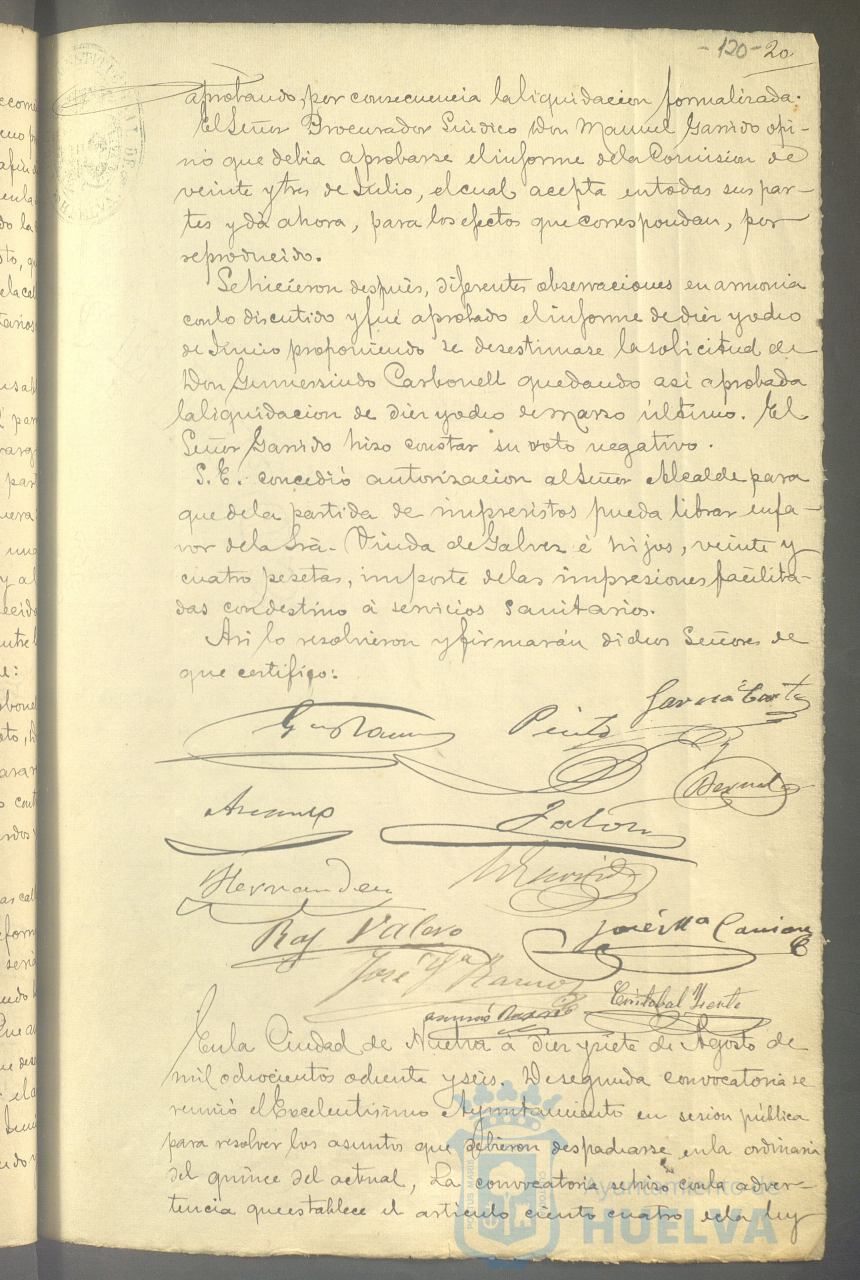 -120- 20
aprobando, por consecuencia la liquidacion formalizada.
El Señor Procurador Sindico Don Manuel Garrido opi-
nó que debia aprobarse el informe de la Comision de
veinte y tres de Julio, el cual acepta en todas sus par-
tes y dá ahora, para los efectos que correspondan, por
reproducido.
Se hicieron despues, diferentes observaciones en armonia
con lo discutido y fué aprobado el informe de diez y ocho
de Junio proponiendo se desestimase la solicitud de
Don Gumersindo Carbonell quedando así aprobada
la liquidacion de diez y ocho de Marzo último. El
Señor Garrido hizo constar su voto negativo.
S.E. concedió autorizacion al Señor Alcalde para
que de la partida de imprevistos pueda librar en fa-
vor de la Srâ. Viuda de Galvez é hijos, veinte y
cuatro pesetas, importe de las impresiones facilita-
das con destino á servicios sanitarios.
Asi lo resolvieron y firmarán dichos Señores de
que certifico:
Garcia
Pinto
Hernandez
Raf Valero
José Mª
José Mª Ramos
Cristobal
En la Ciudad de Huelva á diez y siete de Agosto de
mil ochocientos ochenta y seis. De segunda convocatoria se
reunió el Excelentisimo Ayuntamiento en sesion pública
para resolver los asuntos que debieron despacharse en la ordinaria
del quince del actual, La convocatoria se hizo con la adver-
tencia que establece el articulo ciento cuatro de la ley
Ayuntamiento de
HUELVA